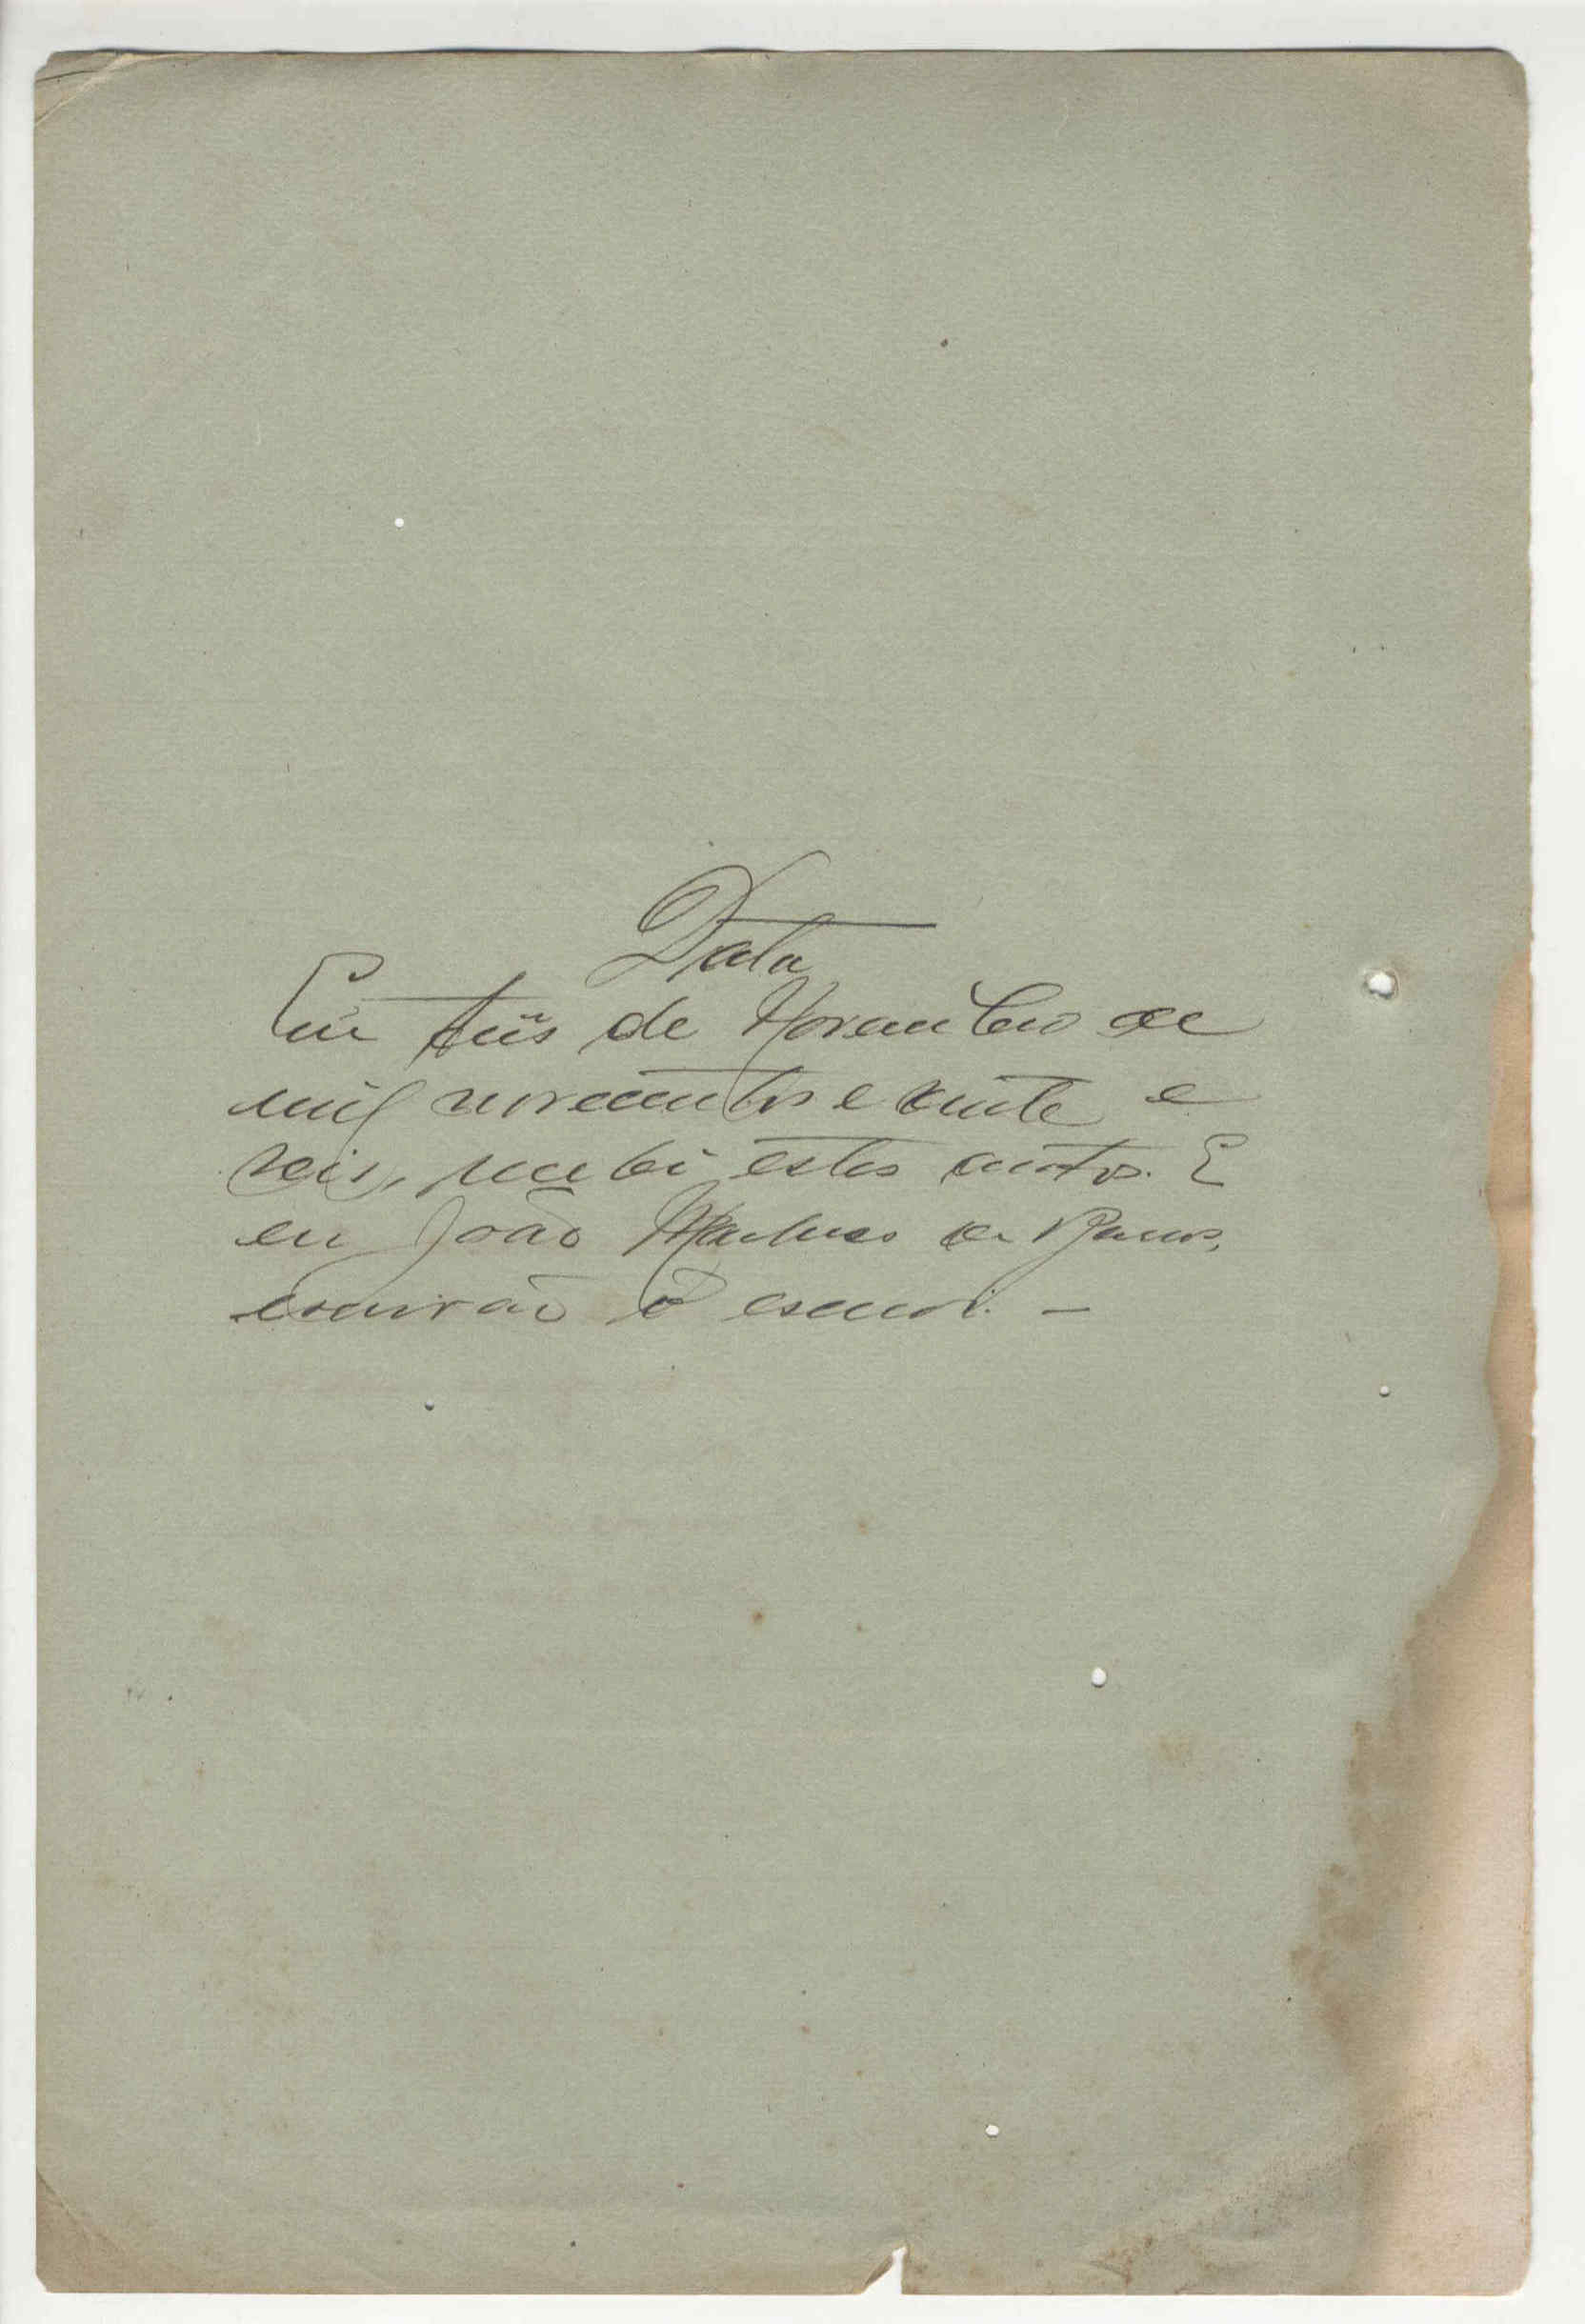 Data
Em tres de Novembro de
mil novecentos e vinte e
seis, recebi estes autos. E
eu João de
escrivão o escrevi. —